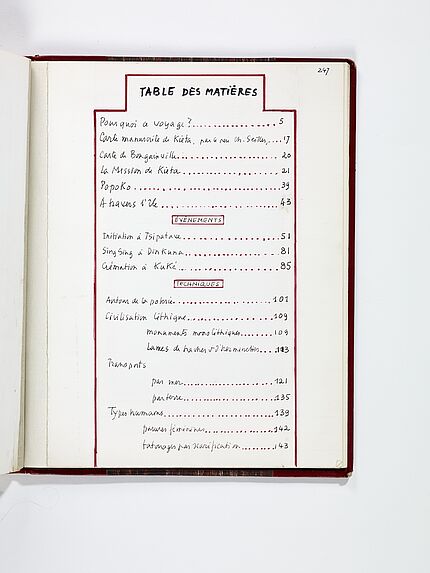 247
TABLE DES MATIÈRES
Pourquoi ce voyage?..................5
Carte manuscrite de Kiéta, par le Ch. ....17
Carte de Bougainville..................20
La Mission de Kiéta..................21
Popoko..................39
A travers l'île..................43
ÉVÉNEMENTS
Initiation à..................51
Sing Sing à..................81
Crémation à Kuké..................85
TECHNIQUES
Autour de la poterie..................101
Civilisation lithique..................109
monuments monolithiques.......109
Lames de haches & d'herminettes....113
Transports
par mer..................121
par terre..................135
Types humains..................139
parures féminines..................142
tatouages par scarification..........143